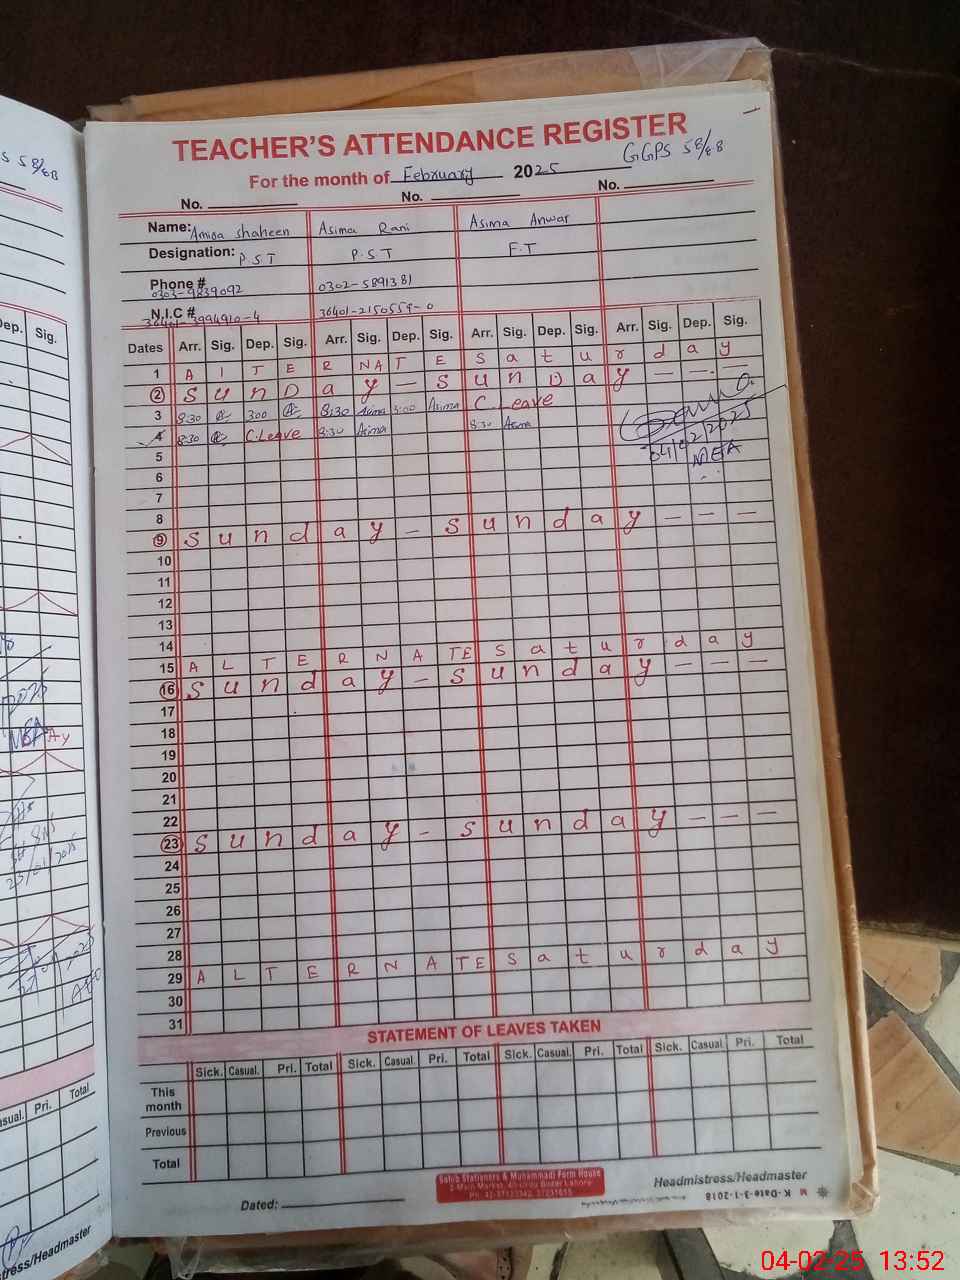 TEACHER'S ATTENDANCE REGISTER
GGPS 58/68
For the month of February 2025
No. No. No.
Name: Amina Shaheen Asima Rani Asima Anwar
Designation: P.S.T P.S.T E.T
Phone # 0303-9839092 0302-5891381
N.I.C # 36401-3994910-4 36401-2150559-0
Dates Arr. Sig. Dep. Sig. Arr. Sig. Dep. Sig. Arr. Sig. Dep. Sig. Arr. Sig. Dep. Sig.
1 A l T E R NA T E S a t u r d a y
2 S u n D a y — S u n D a y — — —
3 8:30 3:00 8:30 Asima 3:00 Asima C. Leave
4 8:30 C.Leave 8:30 Asima 8:30 Asma
04/02/2025
MEA
5
6
7
8
9 S u n d a y — S u n d a y — — —
10
11
12
13
14
15 A L T E R N A TE S a t u r d a y
16 S u n d a y — S u n d a y — — —
17
18
19
20
21
22
23 S u n d a y — S u n d a y — — —
24
25
26
27
28
29 A L T E R N A TE S a t u r d a y
30
31
STATEMENT OF LEAVES TAKEN
Sick. Casual. Pri. Total Sick. Casual. Pri. Total Sick. Casual. Pri. Total Sick. Casual. Pri. Total
This month
Previous
Total
Sahib Stationers & Muhammadi Form House
Headmistress/Headmaster
Dated:
K-Date-3-1-2018
S 58/68
Dep. Sig.
MEA Ay
23/01/2025
Casual. Pri. Total
Headmaster
04-02-25 13:52